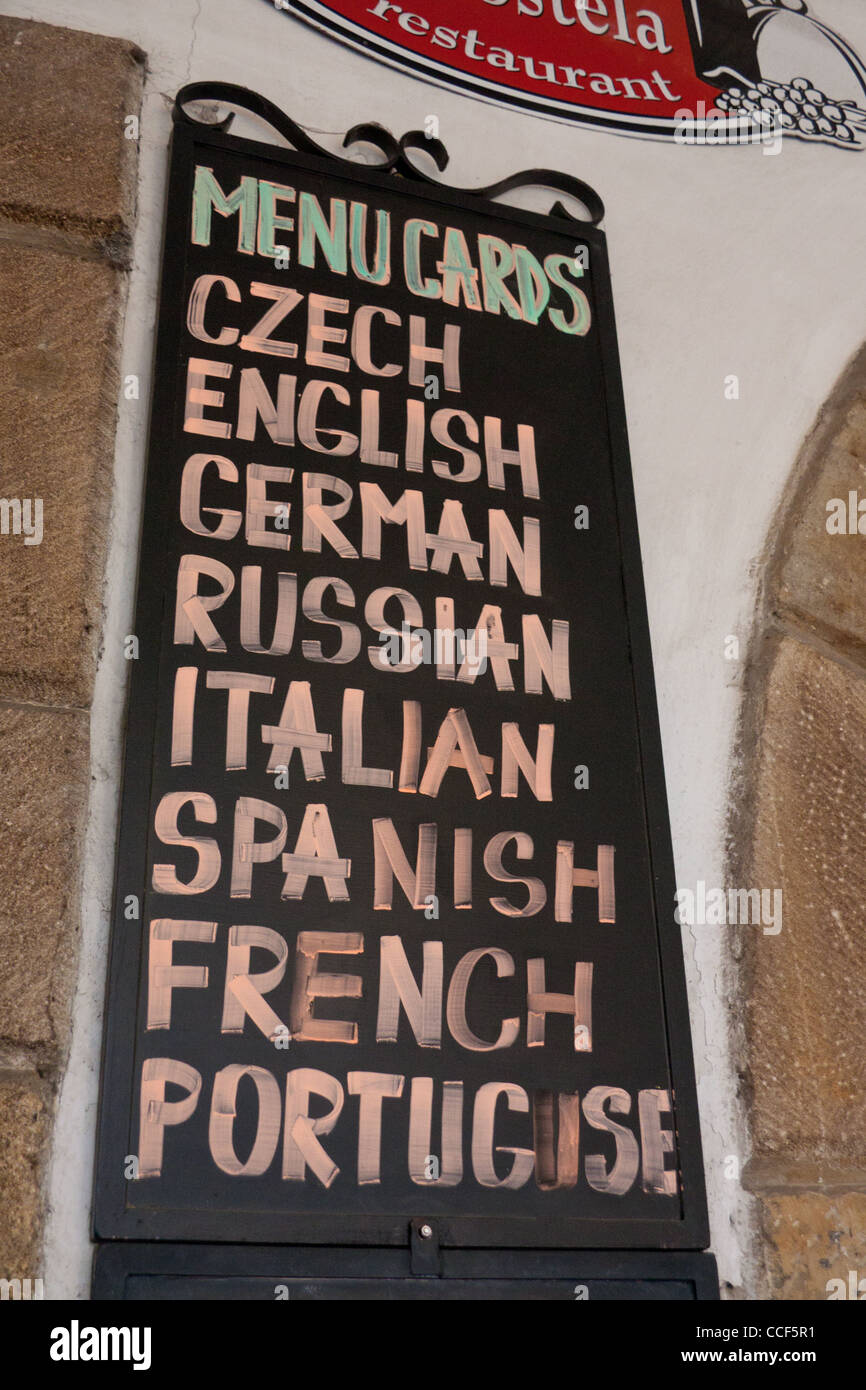 restaurant
MENU CARDS
CZECH
ENGLISH
GERMAN
RUSSIAN
ITALIAN
SPANISH
FRENCH
PORTUGUSE
alamy
Image ID: CCF5R1
www.alamy.com